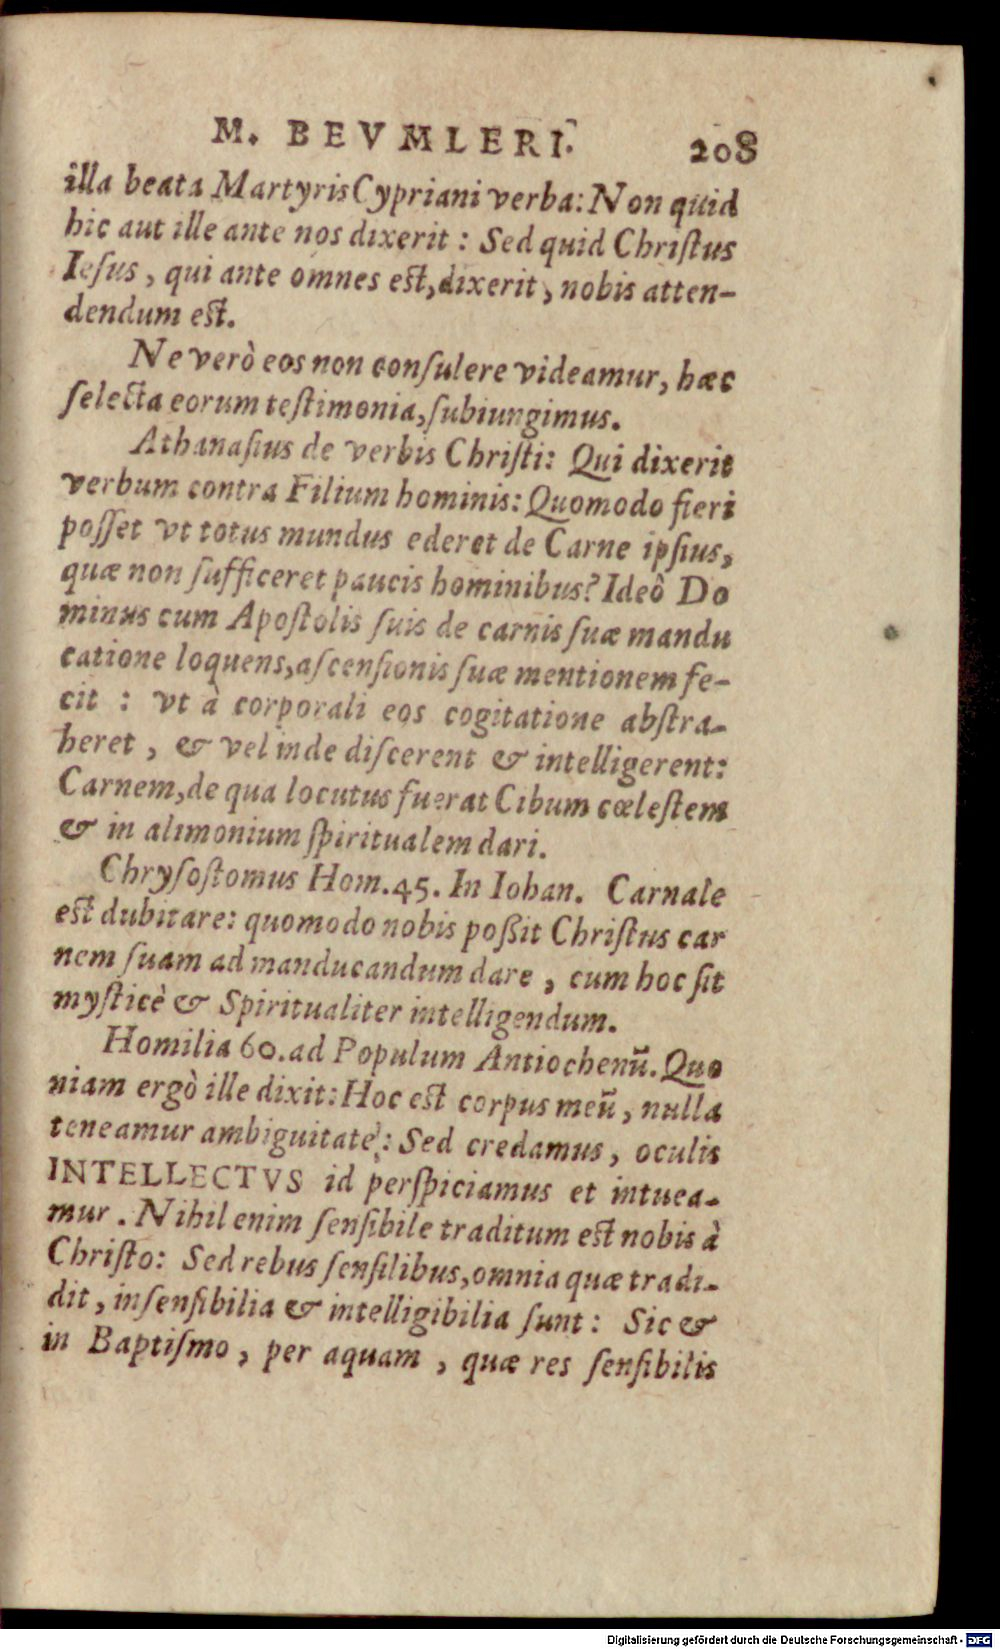 M. BEVMLERI. 208
illa beata Martyris Cypriani verba: Non quid
hic aut ille ante nos dixerit : Sed quid Chriſtus
Ieſus , qui ante omnes eſt, dixerit , nobis atten-
dendum eſt.
Ne verò eos non conſulere videamur, hæc
ſelecta eorum teſtimonia, ſubiungimus.
Athanaſius de verbis Chriſti: Qui dixerit
verbum contra Filium hominis: Quomodo fieri
poſſet vt totus mundus ederet de Carne ipſius,
quæ non ſufficeret paucis hominibus? Ideô Do
minus cum Apoſtolis ſuis de carnis ſuæ mandu
catione loquens, aſcenſionis ſuæ mentionem fe-
cit : vt à corporali eos cogitatione abſtra-
heret , & vel inde diſcerent & intelligerent:
Carnem, de qua locutus fuerat Cibum cœleſtem
& in alimonium ſpiritualem dari.
Chryſoſtomus Hom. 45. In Iohan. Carnale
eſt dubitare: quomodo nobis poßit Chriſtus car
nem ſuam ad manducandum dare , cum hoc ſit
myſticè & Spiritualiter intelligendum.
Homilia 60. ad Populum Antiochenū. Quo
niam ergò ille dixit: Hoc eſt corpus meū , nulla
teneamur ambiguitate : Sed credamus , oculis
INTELLECTVS id perſpiciamus et intuea-
mur . Nihil enim ſenſibile traditum eſt nobis à
Chriſto: Sed rebus ſenſilibus, omnia quæ tradi-
dit , inſenſibilia & intelligibilia ſunt : Sic &
in Baptiſmo , per aquam , quæ res ſenſibilis
Digitalisierung gefördert durch die Deutsche Forschungsgemeinschaft - DFG